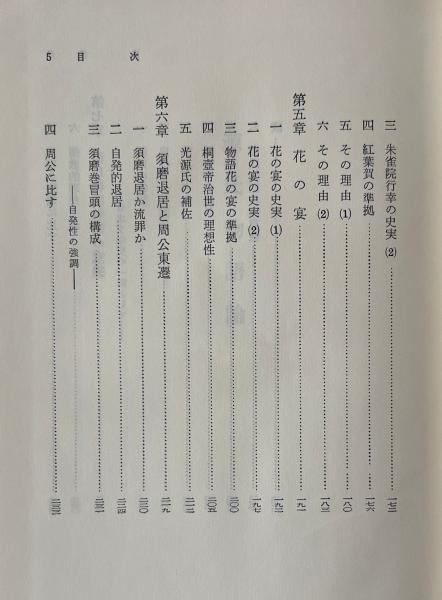 5 目次
三 朱雀院行幸の史実(2)……一七二
四 紅葉賀の準拠……一七六
五 その理由(1)……一八〇
六 その理由(2)……一八三
第五章 花の宴……一九一
一 花の宴の史実(1)……一九二
二 花の宴の史実(2)……一九七
三 物語花の宴の準拠……二〇〇
四 桐壺帝治世の理想性……二〇五
五 光源氏の補佐……二一一
第六章 須磨退居と周公東遷……二一九
一 須磨退居か流罪か……二二〇
二 自発的退居……二二四
三 須磨巻冒頭の構成……二三一
――自発性の強調――
四 周公に比す……二三三